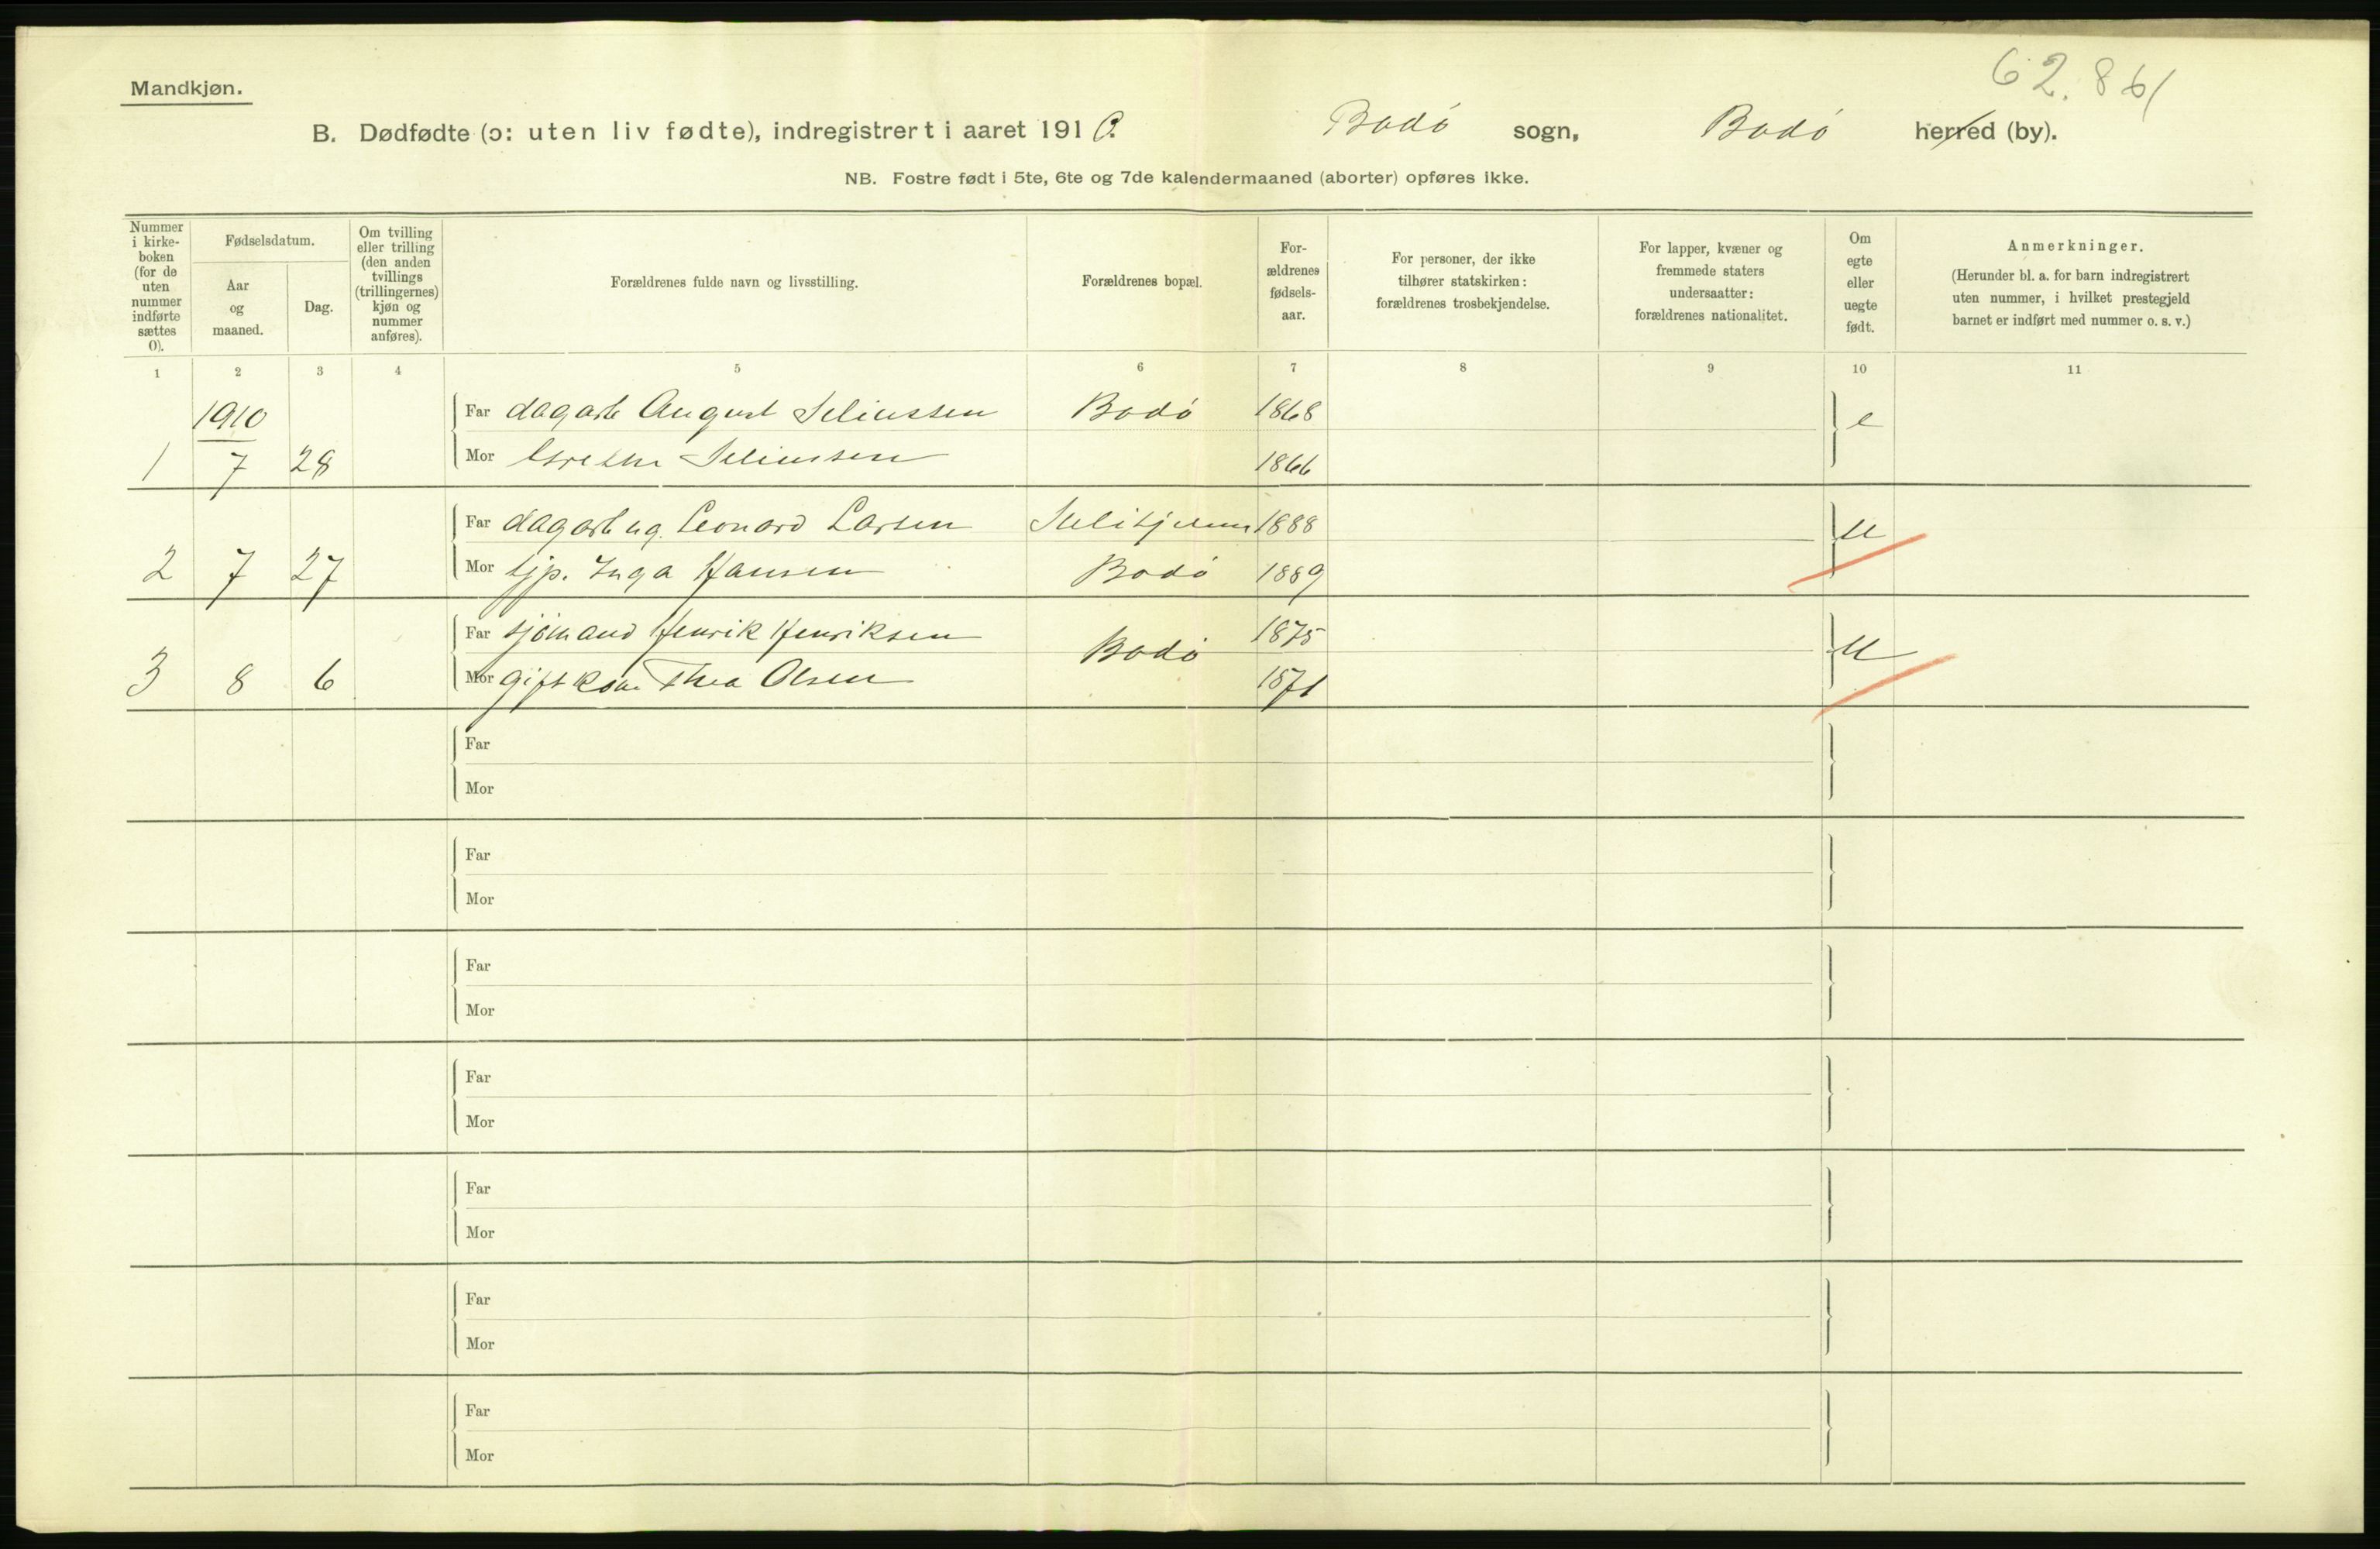 62.861
Mandkjøn.
B. Dødfødte (ɔ: uten liv fødte), indregistrert i aaret 1910. Bodö sogn, Bodö herred (by).
NB. Fostre født i 5te, 6te og 7de kalendermaaned (aborter) opføres ikke.
Nummer i kirke-boken (for de uten nummer indførte sættes 0).
Fødselsdatum.
Aar og maaned.
Dag.
Om tvilling eller trilling (den anden tvillings (trillingernes) kjøn og nummer anføres).
Forældrenes fulde navn og livsstilling.
Forældrenes bopæl.
For-ældrenes fødsels-aar.
For personer, der ikke tilhører statskirken: forældrenes trosbekjendelse.
For lapper, kvæner og fremmede staters undersaatter: forældrenes nationalitet.
Om egte eller uegte født.
Anmerkninger.
(Herunder bl. a. for barn indregistrert uten nummer, i hvilket prestegjeld barnet er indført med nummer o. s. v.)
1 2 3 4 5 6 7 8 9 10 11
1910 Far dagarb August Seliussen Bodö 1868 e
1 7 28 Mor Grethe Seliussen 1866
Far dagarb ug. Leonard Larsen Sulitjelma 1888 u
2 7 27 Mor tjp. Inga Hansen Bodö 1889
Far sjömand Henrik Henriksen Bodö 1875 u
3 8 6 Mor gift kone Thea Olsen 1871
Far
Mor
Far
Mor
Far
Mor
Far
Mor
Far
Mor
Far
Mor
Far
Mor